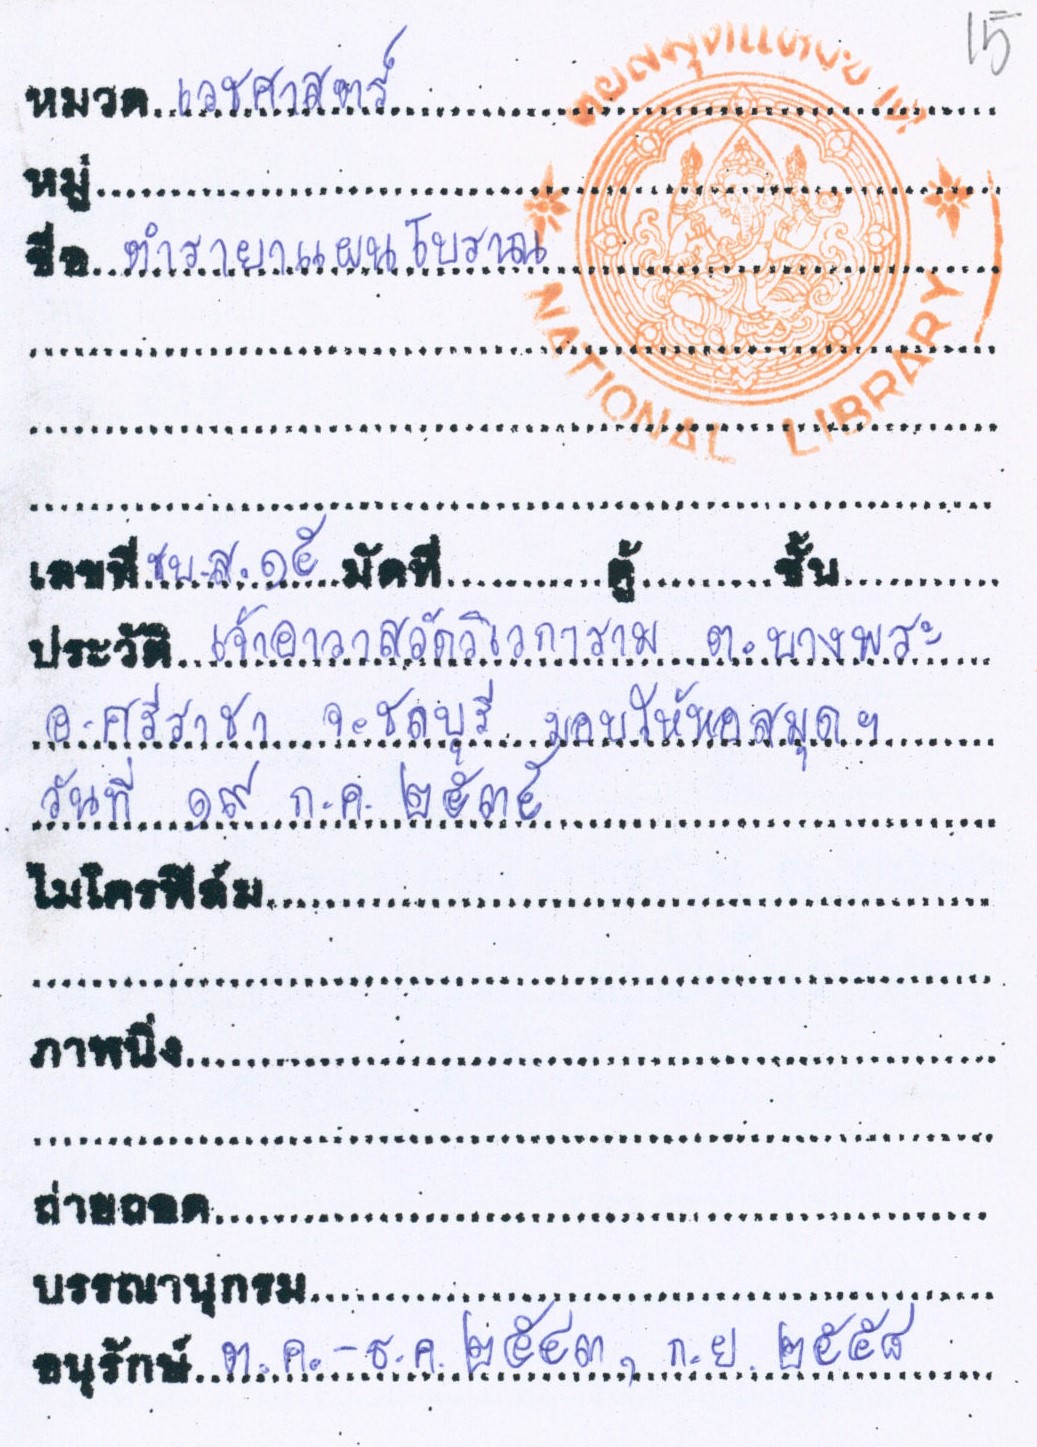 15
หอสมุดแห่งชาติ
หมวด เวชศาสตร์
หมู่
ชื่อ ตำรายาแผนโบราณ
NATIONAL LIBRARY
เลขที่ ชบ.ส.๑๕ มัดที่ ตู้ ชั้น
ประวัติ เจ้าอาวาสวัดวิเวการาม ต.บางพระ
อ.ศรีราชา จ.ชลบุรี มอบให้หอสมุดฯ
วันที่ ๑๙ ก.ค. ๒๕๓๕
ไมโครฟิล์ม
ภาพนิ่ง
ถ่ายถอด
บรรณานุกรม
อนุรักษ์ ต.ค.-ธ.ค. ๒๕๔๓, ก.ย. ๒๕๕๘